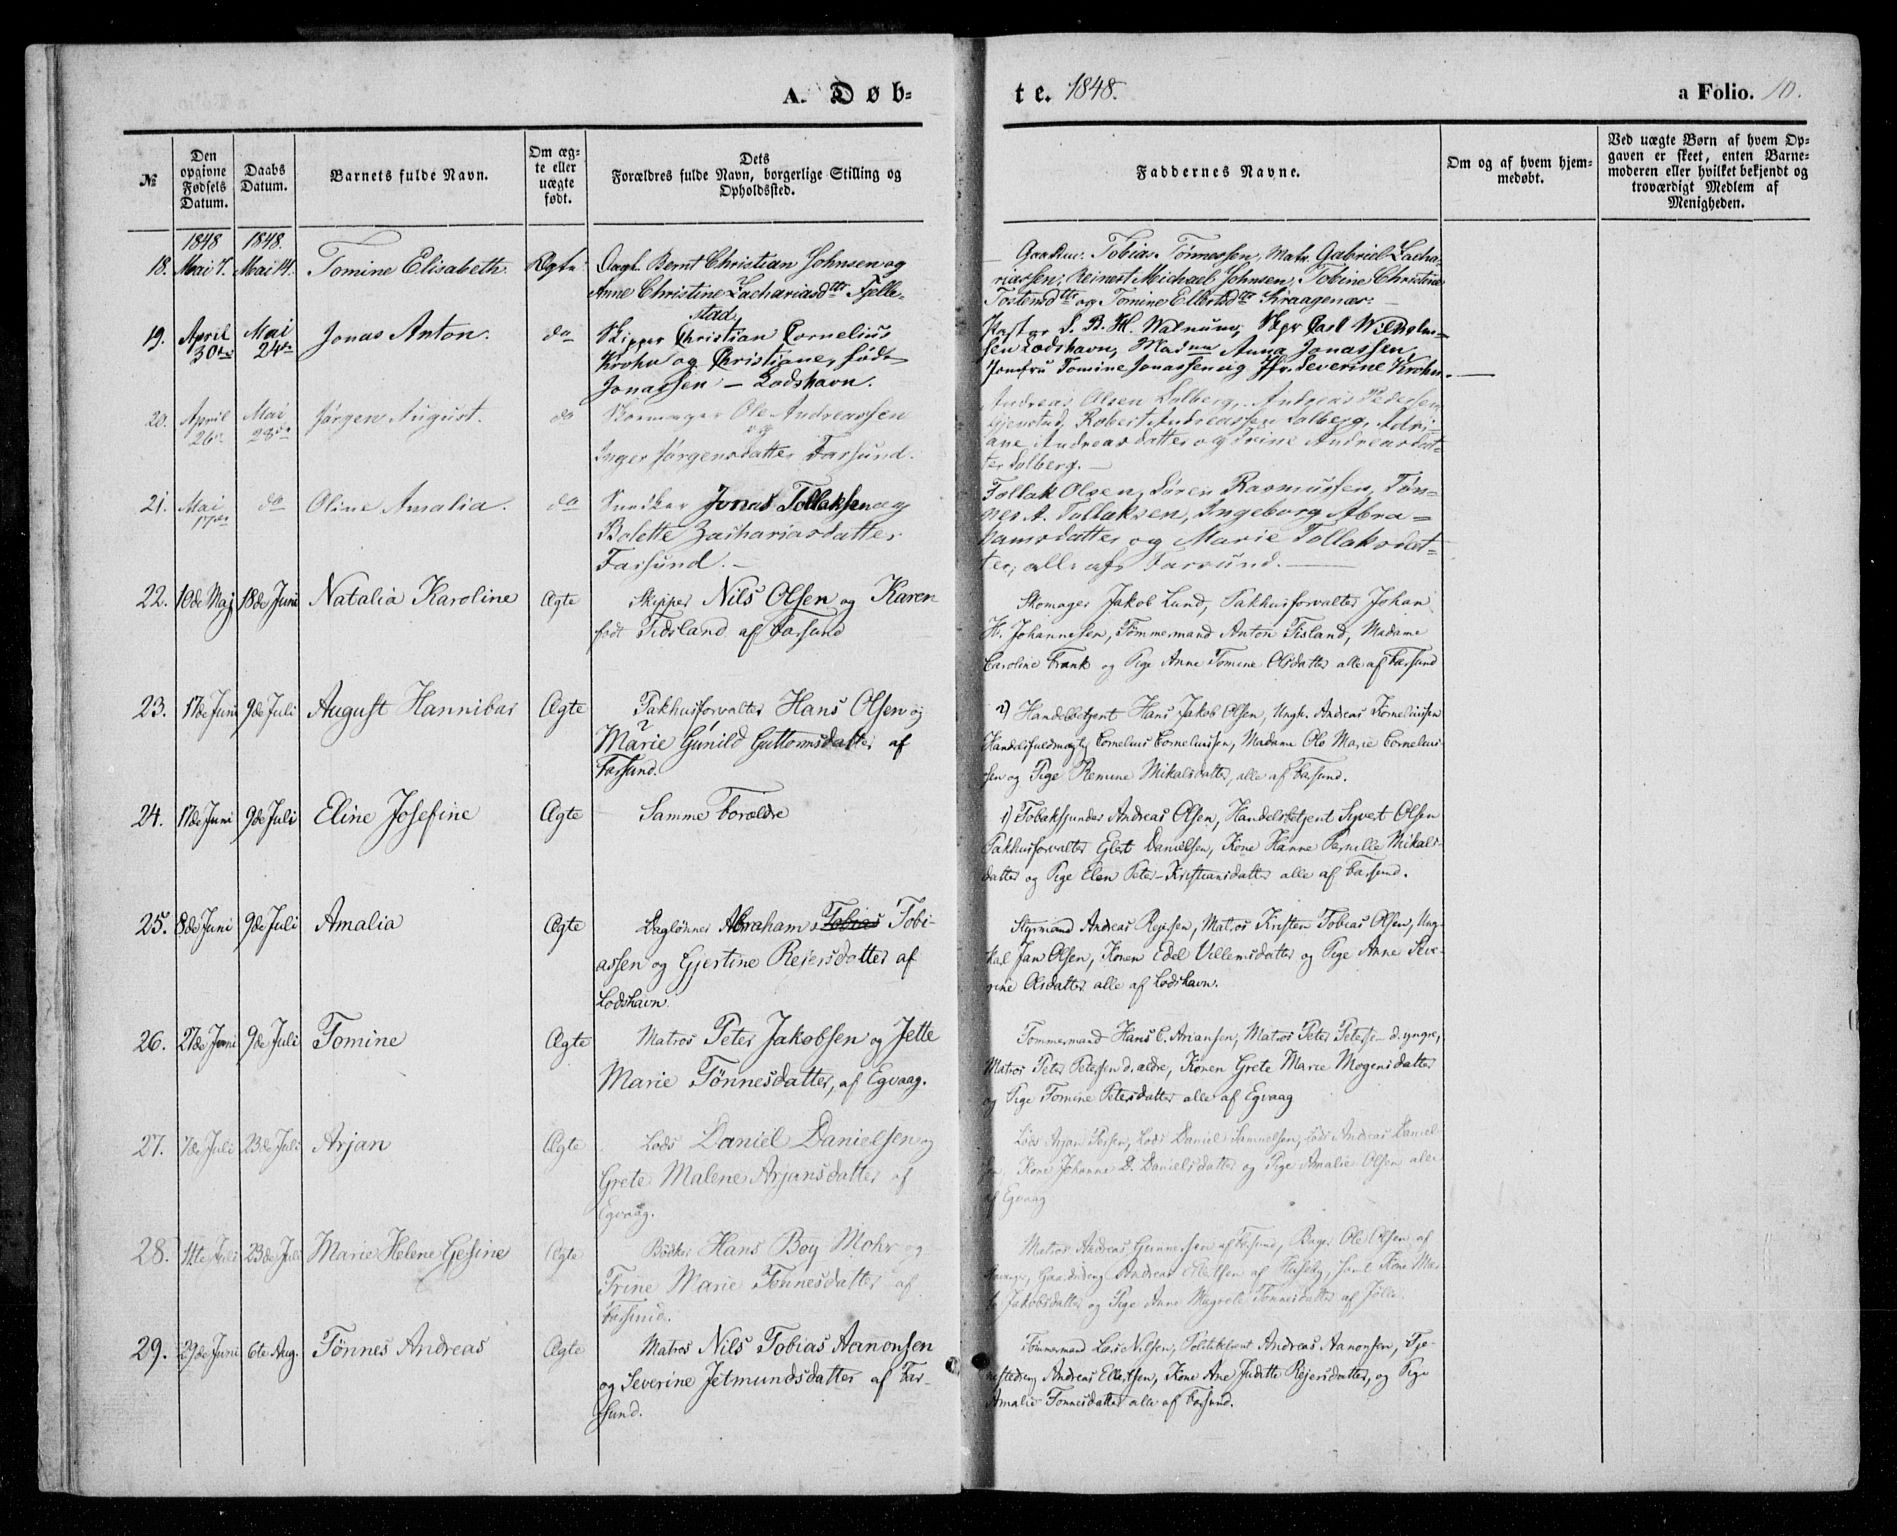 A. Døb-
te. 1848.
a Folio. 10.
№
Den opgivne Fødsels Datum.
Daabs Datum.
Barnets fulde Navn.
Om ægte eller uægte født.
Dets Forældres fulde Navn, borgerlige Stilling og Opholdssted.
Faddernes Navne.
Om og af hvem hjemmedøbt.
Ved uægte Børn af hvem Opgaven er skeet, enten Barnemoderen eller hvilket bekjendt og troværdigt Medlem af Menigheden.
1848 1848.
18. Mai 7. Mai 14. Tomine Elisabeth. Ægte Dagl. Bernt Christian Johnsen og
Anne Christine Zachariasdttr Fjelle-
stad
Gaardm. Tobias Tønnessen, Matr. Gabriel Zacha-
riassen, Reinert Michael Johnsen, Tobine Christine
Tostensdttr og Tomine Elbertsdttr Kraagenæs.
19. April 30te Mai 24de Jonas Anton. do Skipper Christian Cornelius
Krohn og Christiane, født
Jonassen – Lodshavn.
Pastor S. B. H. Walnum, Skpr Carl Wilhelm-
sen Lodshavn, Mad Anna Jonassen
Jomfru Tomine Jonassen og Jfr. Severine Krohn.
20. April 26de Mai 28de Jørgen August. do Skomager Ole Andreassen
og
Inger Jørgensdatter Farsund.
Andreas Olsen Solberg, Andreas Pedersen
Robert Andreassen Solberg, Adri-
ane Andreasdatter og Trine Andreasdat-
ter Solberg.
21. Mai 17de do Oline Amalia. do Snedker Jonas Tollaksen og
Bolette Zachariasdatter
Farsund. –
Tollak Olsen, Søren Rasmussen, Tøn-
nes A. Tollaksen, Ingeborg Abra-
hamsdatter og Marie Tollaksdat-
ter, alle af Farsund.
22. 10de Maj 18de Juni Natalia Karoline Ægte Skipper Nils Olsen og Karen
født Tidsland af Farsund
Skomager Jakob Lund, Pakhusforvalter Johan
H. Johannesen, Tømmermand Anton Tisland, Madame
Caroline Frank og Pige Anne Tomine Olsdatter alle af Farsund
23. 17de Juni 9de Juli August Hannibar Ægte Pakhusforvalter Hans Olsen og
Marie Gunild Guttormsdatter af
Farsund.
2) Handelsbetjent Hans Jakob Olsen, Ungk. Andreas Korneliussen
Handelsfuldmægtig Cornelius Corneliussen, Madame Ole Marie Cornelius-
sen og Pige Remine Mikalsdatter, alle af Farsund.
24. 17de Juni 9de Juli Eline Josefine Ægte Samme Forældre
1) Tobaksspinder Andreas Olsen, Handelsbetjent Syvert Olsen
Pakhusforvalter Eglert Danielsen, Kone Hanne Pernille Mikals-
datter og Pige Elen Peter-Kristiansdatter alle af Farsund.
25. 8de Juni 9de Juli Amalia Ægte Daglønner Abraham Tobias Tobi-
assen og Gjertine Rejersdatter af
Lodshavn
Styrmand Andreas Rejersen, Matros Kristen Tobias Olsen, Ung-
karl Jan Olsen, Konen Edel Villemsdatter og Pige Anne Seve-
rine Olsdatter alle af Lodshavn.
26. 27de Juni 9de Juli Tomine Ægte Matros Peter Jakobsen og Jette
Marie Tønnesdatter, af Egvaag.
Tømmermand Hans C. Ariansen, Matros Peter Petersen d. yngre,
Matros Peter Petersen d. ældre, Konen Grete Marie Mogensdatter
og Pige Tomine Petersdatter alle af Egvaag
27. 7de Juli 23de Juli Arjan Ægte Lods Daniel Danielsen og
Grete Malene Arjansdatter af
Egvaag.
Lods Arjan Persen, Lods Daniel Samuelsen, Lods Andreas Daniel-
sen, Kone Johanne D. Danielsdatter og Pige Amalie Olsen alle
af Egvaag
28. 11te Juli 23de Juli Marie Helene Gesine Ægte Bødker Hans Boy Mohr og
Trine Marie Tønnesdatter af
Farsund.
Matros Andreas Gunnersen af Farsund, Bager Ole Olsen af
Gaarddreng Andreas Ellertsen af Huseby, samt Kone Mar-
Jakobsdatter og Pige Anne Magrete Tønnesdatter af Jølle
29. 29de Juni 6te Aug. Tønnes Andreas Ægte Matros Nils Tobias Aanonsen
og Severine Jetmundsdatter af Far-
sund.
Tømmermand Lars Nilsen, Politibetjent Andreas Aanonsen, Tje-
nestedreng Andreas Ellertsen, Kone Ane Juditte Rejersdatter, og Pige
Amalie Tønnesdatter alle af Farsund.